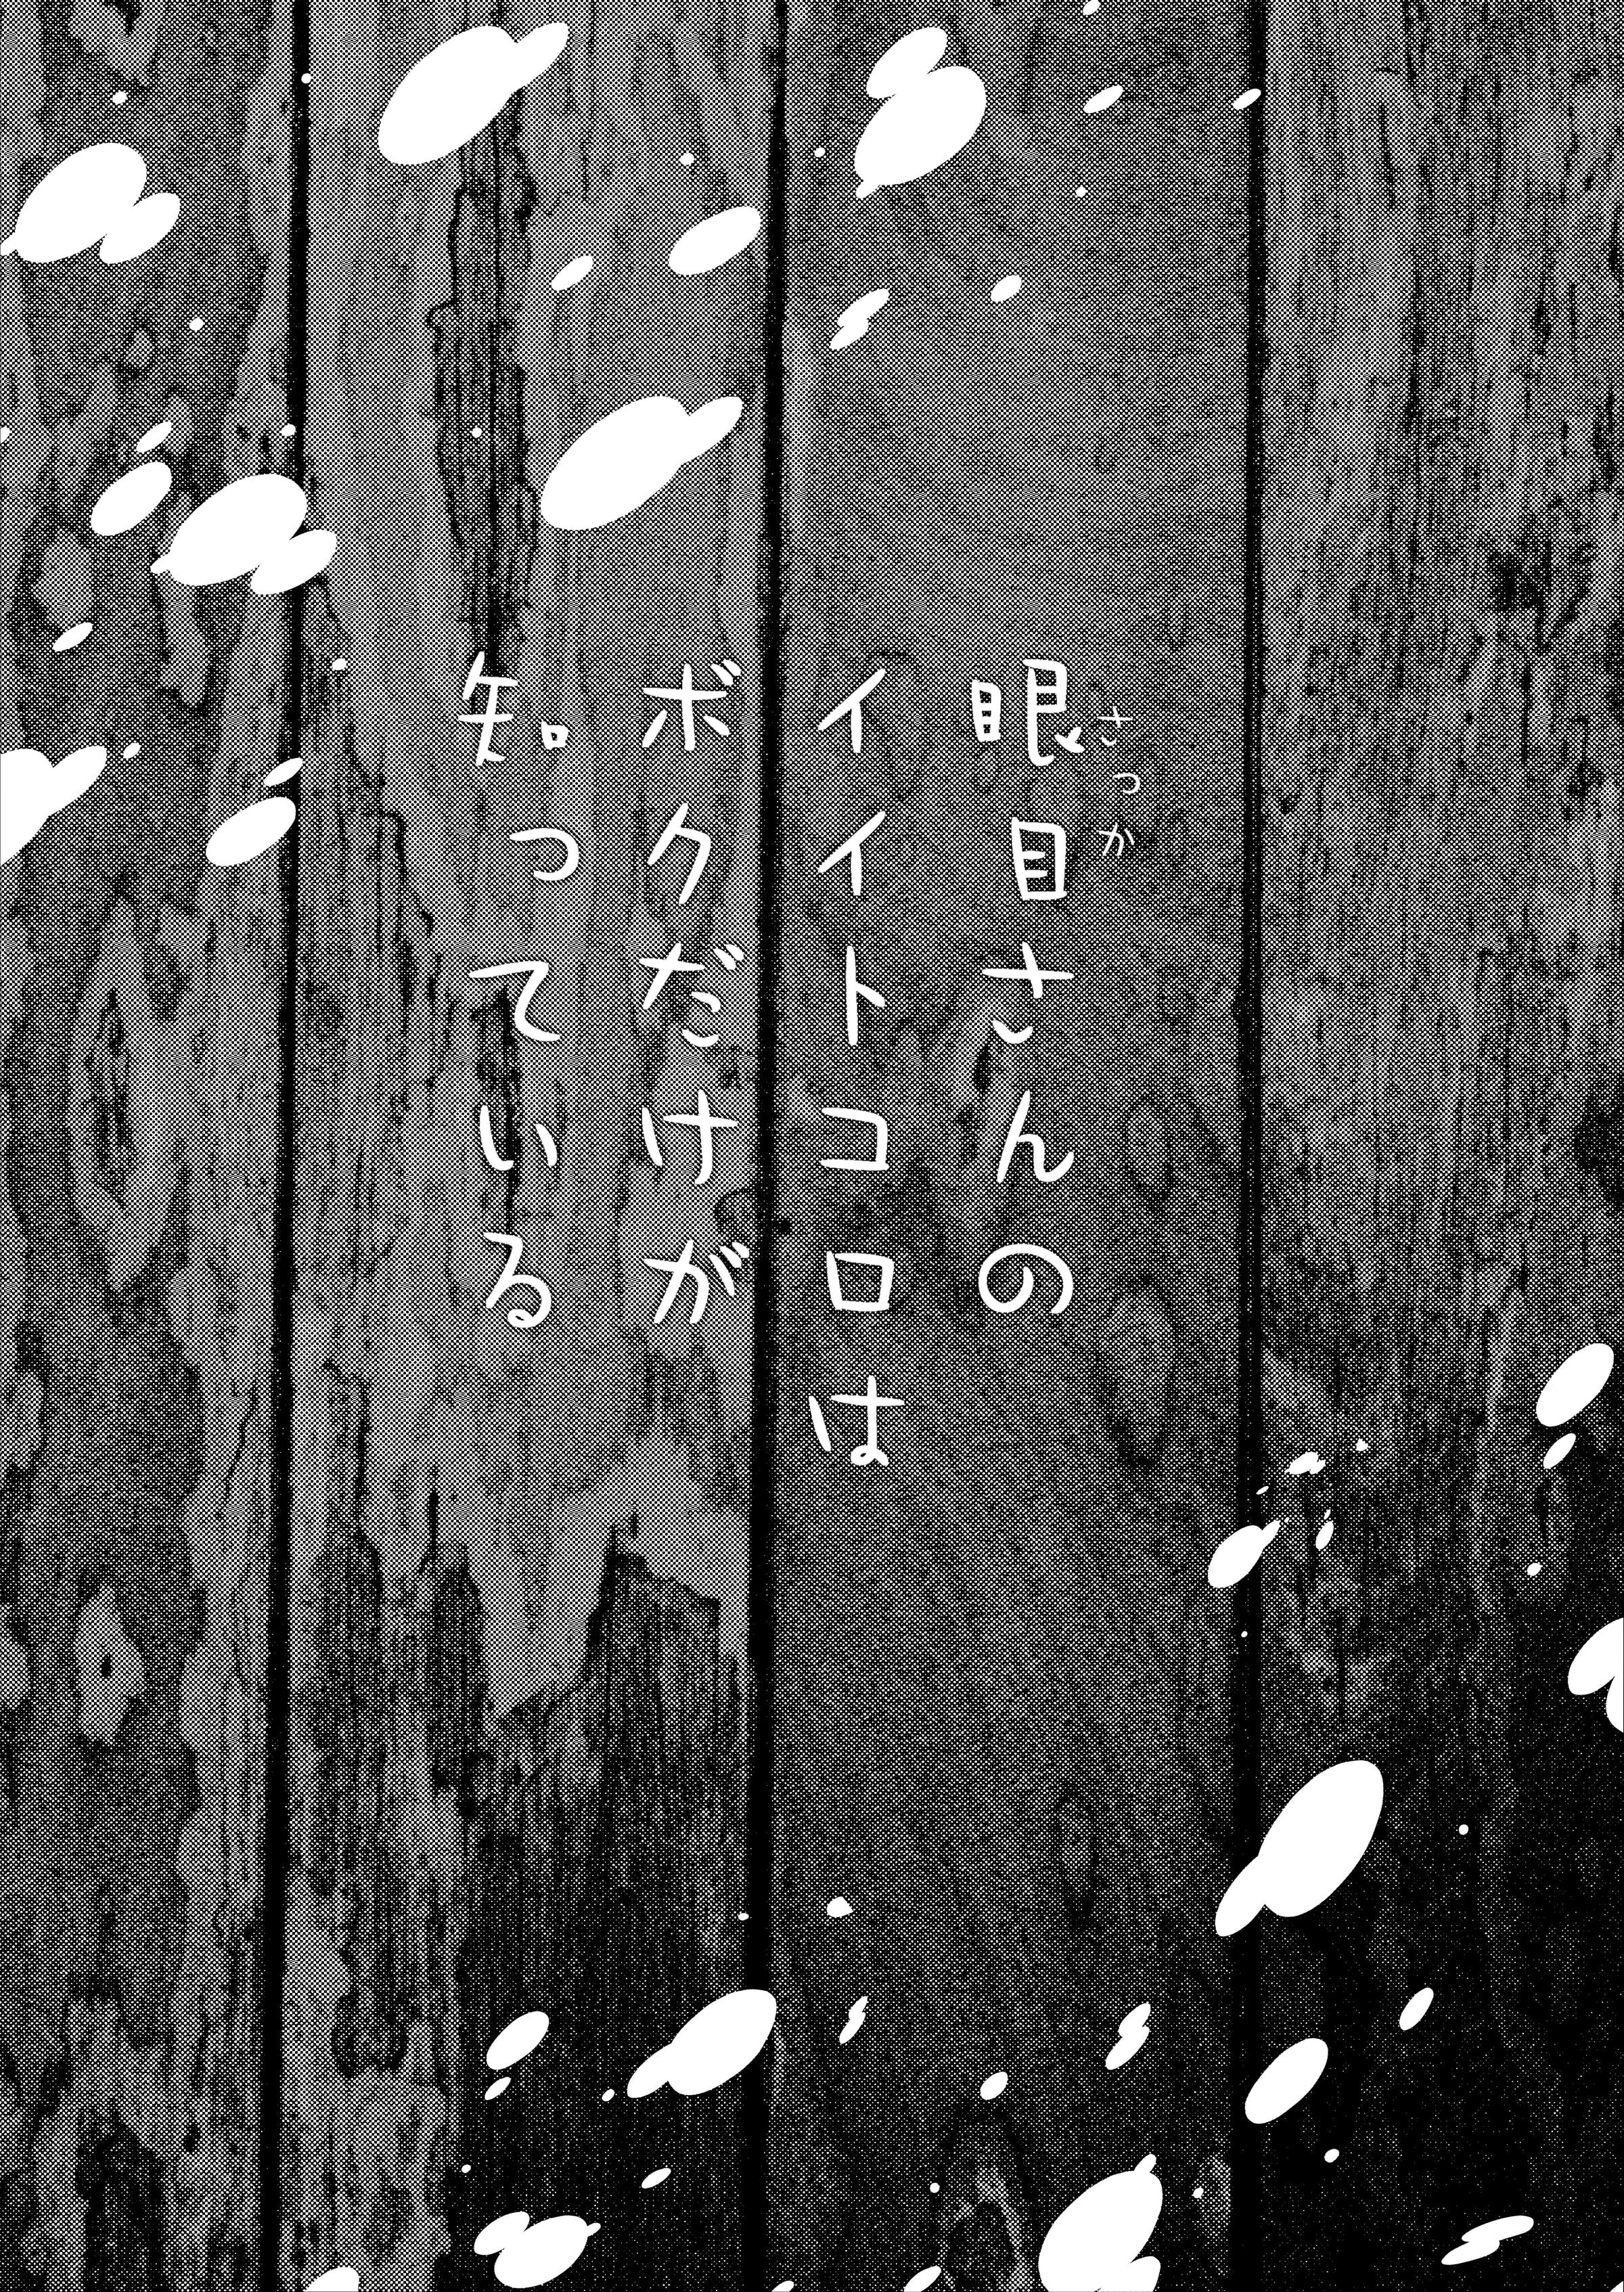 眼目さんの
さっか
イイトコロは
ボクだけが
知っている